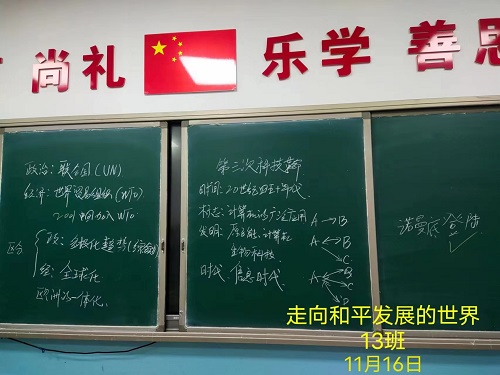 尚礼
乐学
善思
政治：联合国（UN）
经济：世界贸易组织（WTO）
2001中国加入WTO
区分
政：多极化趋势
经：全球化
欧洲 一体化
第三次科技革命
时间：20世纪四五十年代
标志：计算机的广泛应用
发明：原子能、计算机
生物科技
时代：信息时代
A→B
A B
C
A B
C
D
诺曼底登陆
走向和平发展的世界
13班
11月16日